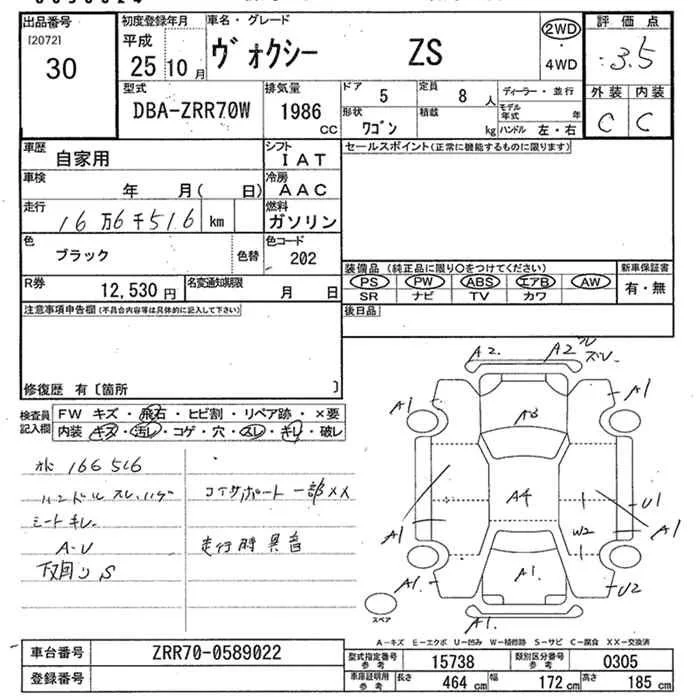 出品番号
[2072]
30
初度登録年月
平成
25 10月
車名・グレード
ヴォクシー ZS
2WD
・
4WD
評価点
3.5
外装 内装
C C
型式
DBA-ZRR70W
排気量
1986 cc
ドア 5
定員 8 人
ディーラー・並行
形状 ワゴン
積載 kg
モデル年式 年
ハンドル 左・右
車歴 自家用
シフト IAT
セールスポイント(正常に機能するものに限ります)
車検 年 月( 日)
冷房 AAC
走行 16万6千516 km
燃料 ガソリン
色 ブラック 色替
色コード 202
R券 12,530円
名変通知期限 月 日
装備品 (純正品に限り○をつけてください)
新車保証書
PS PW ABS エアB AW
有・無
SR ナビ TV カワ
後日品
注意事項申告欄(不具合内容等は具体的に記入して下さい)
修復歴 有〔箇所 〕
検査員記入欄
FW キズ・飛石・ヒビ割・リペア跡・×要
内装・キズ・汚レ・コゲ・穴・スレ・キレ・破レ
166516
ハンドル スレ、ハゲ
シートキレ
A-U
下回りS
コアサポート一部XX
走行時異音
A2 A2 ズレ
A1 A3 A1
A4
A1 W2 A1 U1
A1 A1 U2
A1
スペア
A-キズ E-エクボ U-凹み W-補修跡 S-サビ C-腐食 XX-交換済
車台番号 ZRR70-0589022
登録番号
型式指定番号参考 15738
類別区分番号参考 0305
車庫証明用参考
長さ 464 cm 幅 172 cm 高さ 185 cm